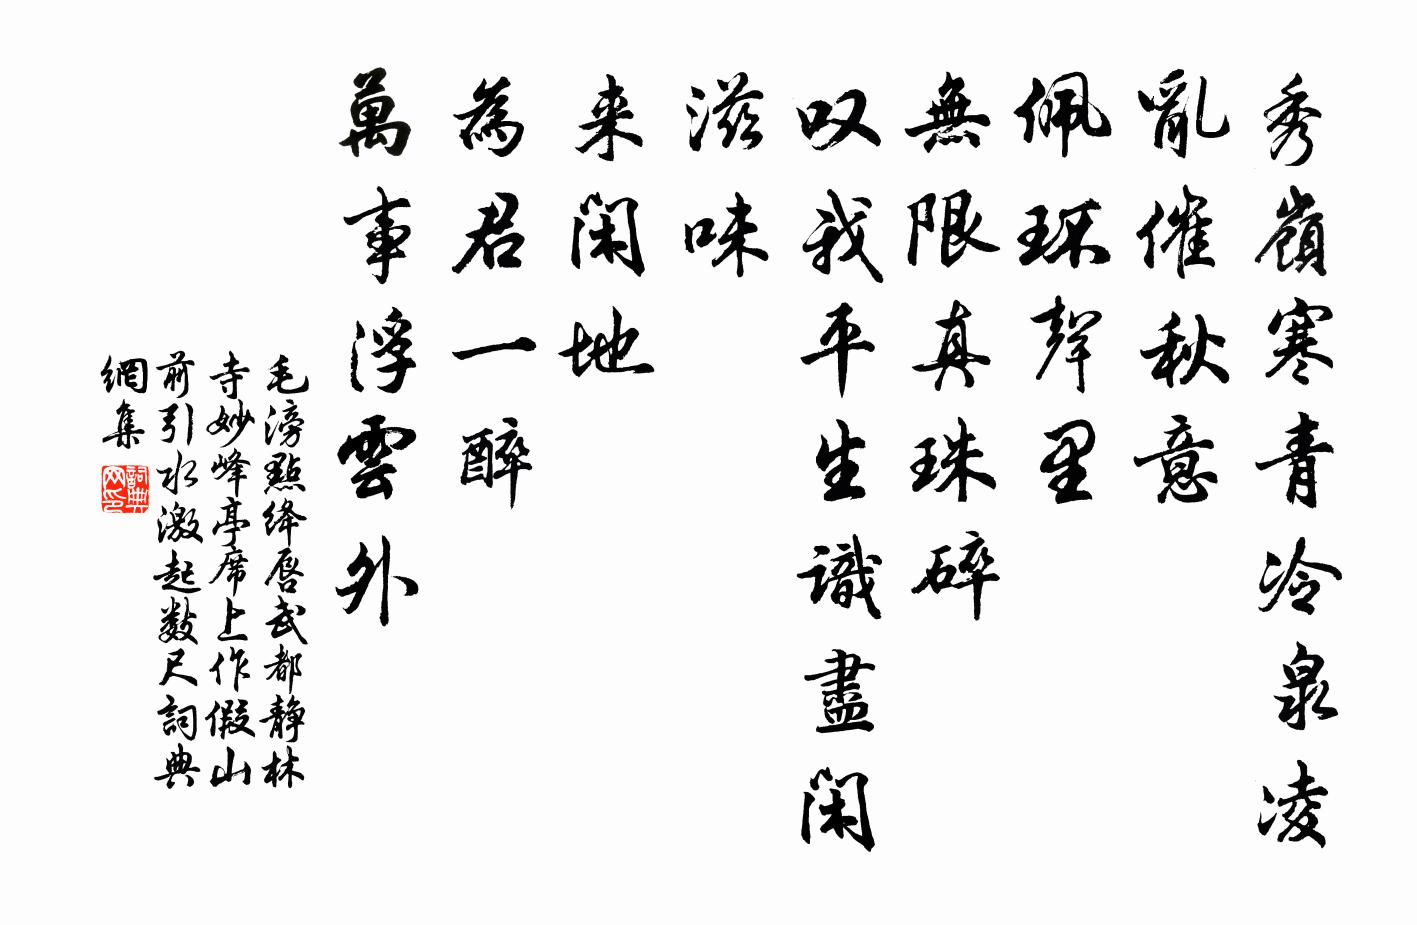 秀嶺寒青冷泉凌
亂催秋意
佩环聲里
無限真珠碎
叹我平生識盡闲
滋味
来闲地
為君一醉
萬事浮雲外
毛滂點絳唇武都静林
寺妙峰亭席上作假山
前引水激起數尺詞典
網集
詞典网印